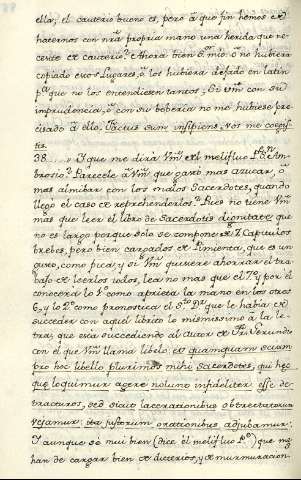 ella; el cauterio bueno es, pero à que fin hemos de
hacernos con nra propria mano una herida que ne-
cesite de cauterio? Ahora bien Sr mio: ò no hubiera
copiado esos lugares, ò los hubiera dejado en latin
pa que no los entendiesen tantos; Si Vm con su
imprudencia, ò con su boberia no me hubiese pre-
cisado à ello. Factus sum insipiens, Vos me coegis-
tis.
38. Y que me dirà Vm del melifluo Pe Sn Am-
brosio? Parecele à Vm que gastò mas azucar, ò
mas almibar con los malos Sacerdotes, quando
llegò el caso de reprehenderlos? Pues no tiene Vm
mas que leer el libro de Sacerdotij dignitate que
no es largo porque solo se compone de Capitulos
brebes, pero bien cargados de Pimienta, que es un
gusto, como pica; y si Vm quisiere ahorrar el tra-
bajo de leerlos todos, lea no mas que el y por el
conocerà lo 1o como aprieta la mano en los otros
6, y lo 2o como pronosticò el Sto que le habia de
succeder con aquel librito lo mismissimo à la le-
tra, que està succediendo al Autor de Fr. Gerundio
con el que Vm llama libelo: et quamquam sciam
pro hoc libello plurimos mihi Sacerdotes, qui hec
quę loquimur agere nolunt infideliter esse de-
tracturos, sed sicut lacerationibus obtrectatorum
vexamur: ita justorum orationibus adjubamur.
Y aunque sè mui bien (dice el melifluo Pe) que me
han de cargar bien de dicterios, y de murmuracion-